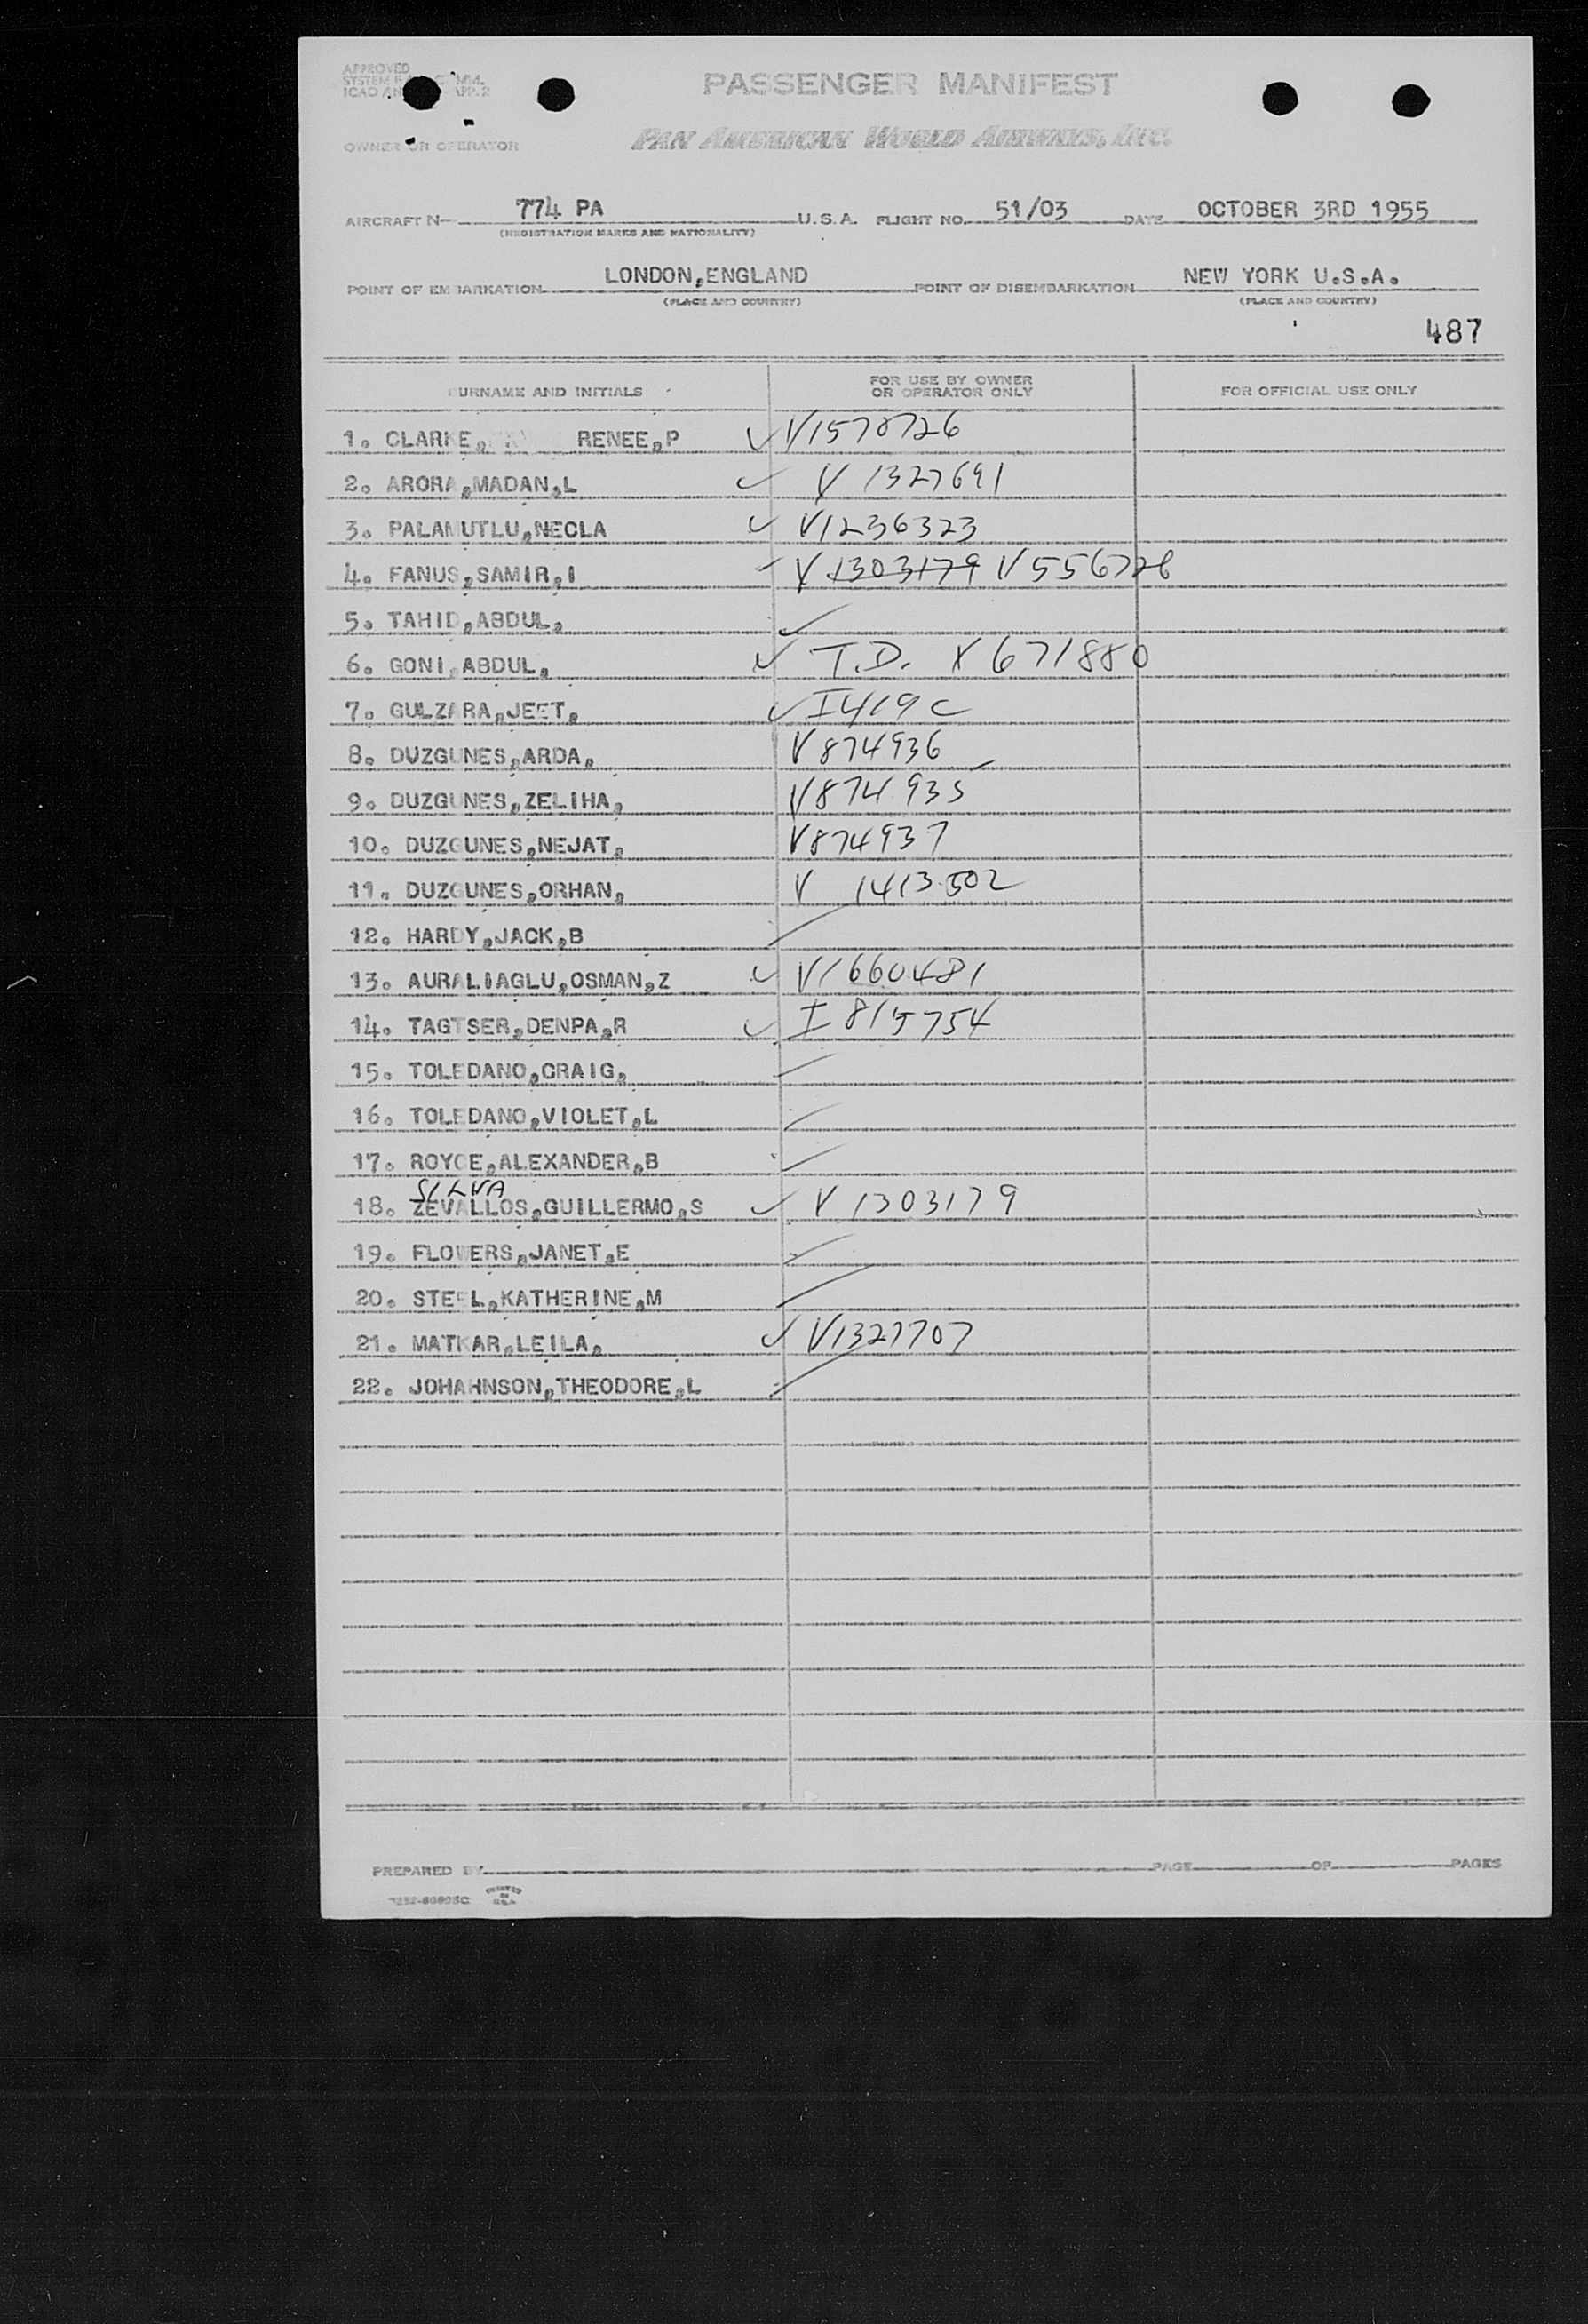 APPROVED
OWNER OR OPERATOR
PASSENGER MANIFEST
PAN AMERICAN WORLD AIRWAYS, INC.
AIRCRAFT N— 774 PA U.S.A. FLIGHT NO. 51/03 DATE OCTOBER 3RD 1955
(REGISTRATION MARKS AND NATIONALITY)
POINT OF EMBARKATION LONDON,ENGLAND POINT OF DISEMBARKATION NEW YORK U.S.A.
(PLACE AND COUNTRY) (PLACE AND COUNTRY)
487
SURNAME AND INITIALS FOR USE BY OWNER OR OPERATOR ONLY FOR OFFICIAL USE ONLY
1. CLARKE, RENEE,P V1578726
2. ARORA,MADAN,L V 1327691
3. PALAMUTLU,NECLA V1236323
4. FANUS,SAMIR,I V 1303179 V556728
5. TAHID,ABDUL,
6. GONI,ABDUL, T.D. X671880
7. GULZARA,JEET, I419C
8. DUZGUNES,ARDA, V874936
9. DUZGUNES,ZELIHA, V874935
10. DUZGUNES,NEJAT, V874937
11. DUZGUNES,ORHAN, V 1413502
12. HARDY,JACK,B
13. AURALIAGLU,OSMAN,Z V1660481
14. TAGTSER,DENPA,R I 815754
15. TOLEDANO,CRAIG,
16. TOLEDANO,VIOLET,L
17. ROYCE,ALEXANDER,B
SILVA
18. ZEVALLOS,GUILLERMO,S V 1303179
19. FLOWERS,JANET,E
20. STEEL,KATHERINE,M
21. MATKAR,LEILA, V1327707
22. JOHAHNSON,THEODORE,L
PREPARED BY PAGE OF PAGES